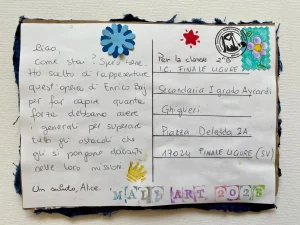 Ciao,
Come stai? Spero bene
Ho scelto di rappresentare
quest'opera di Enrico Baj
per far capire quanta
forza debbano avere
i generali per superare
tutti gli ostacoli che
gli si pongono davanti
nelle loro missioni
Un saluto, Alice.
Per la classe 2°B
I.C. FINALE LIGURE
Secondaria I grado Aycardi
Ghiglieri
Piazza Deledda 2A
17024 FINALE LIGURE (SV)
MAIL ART 2023